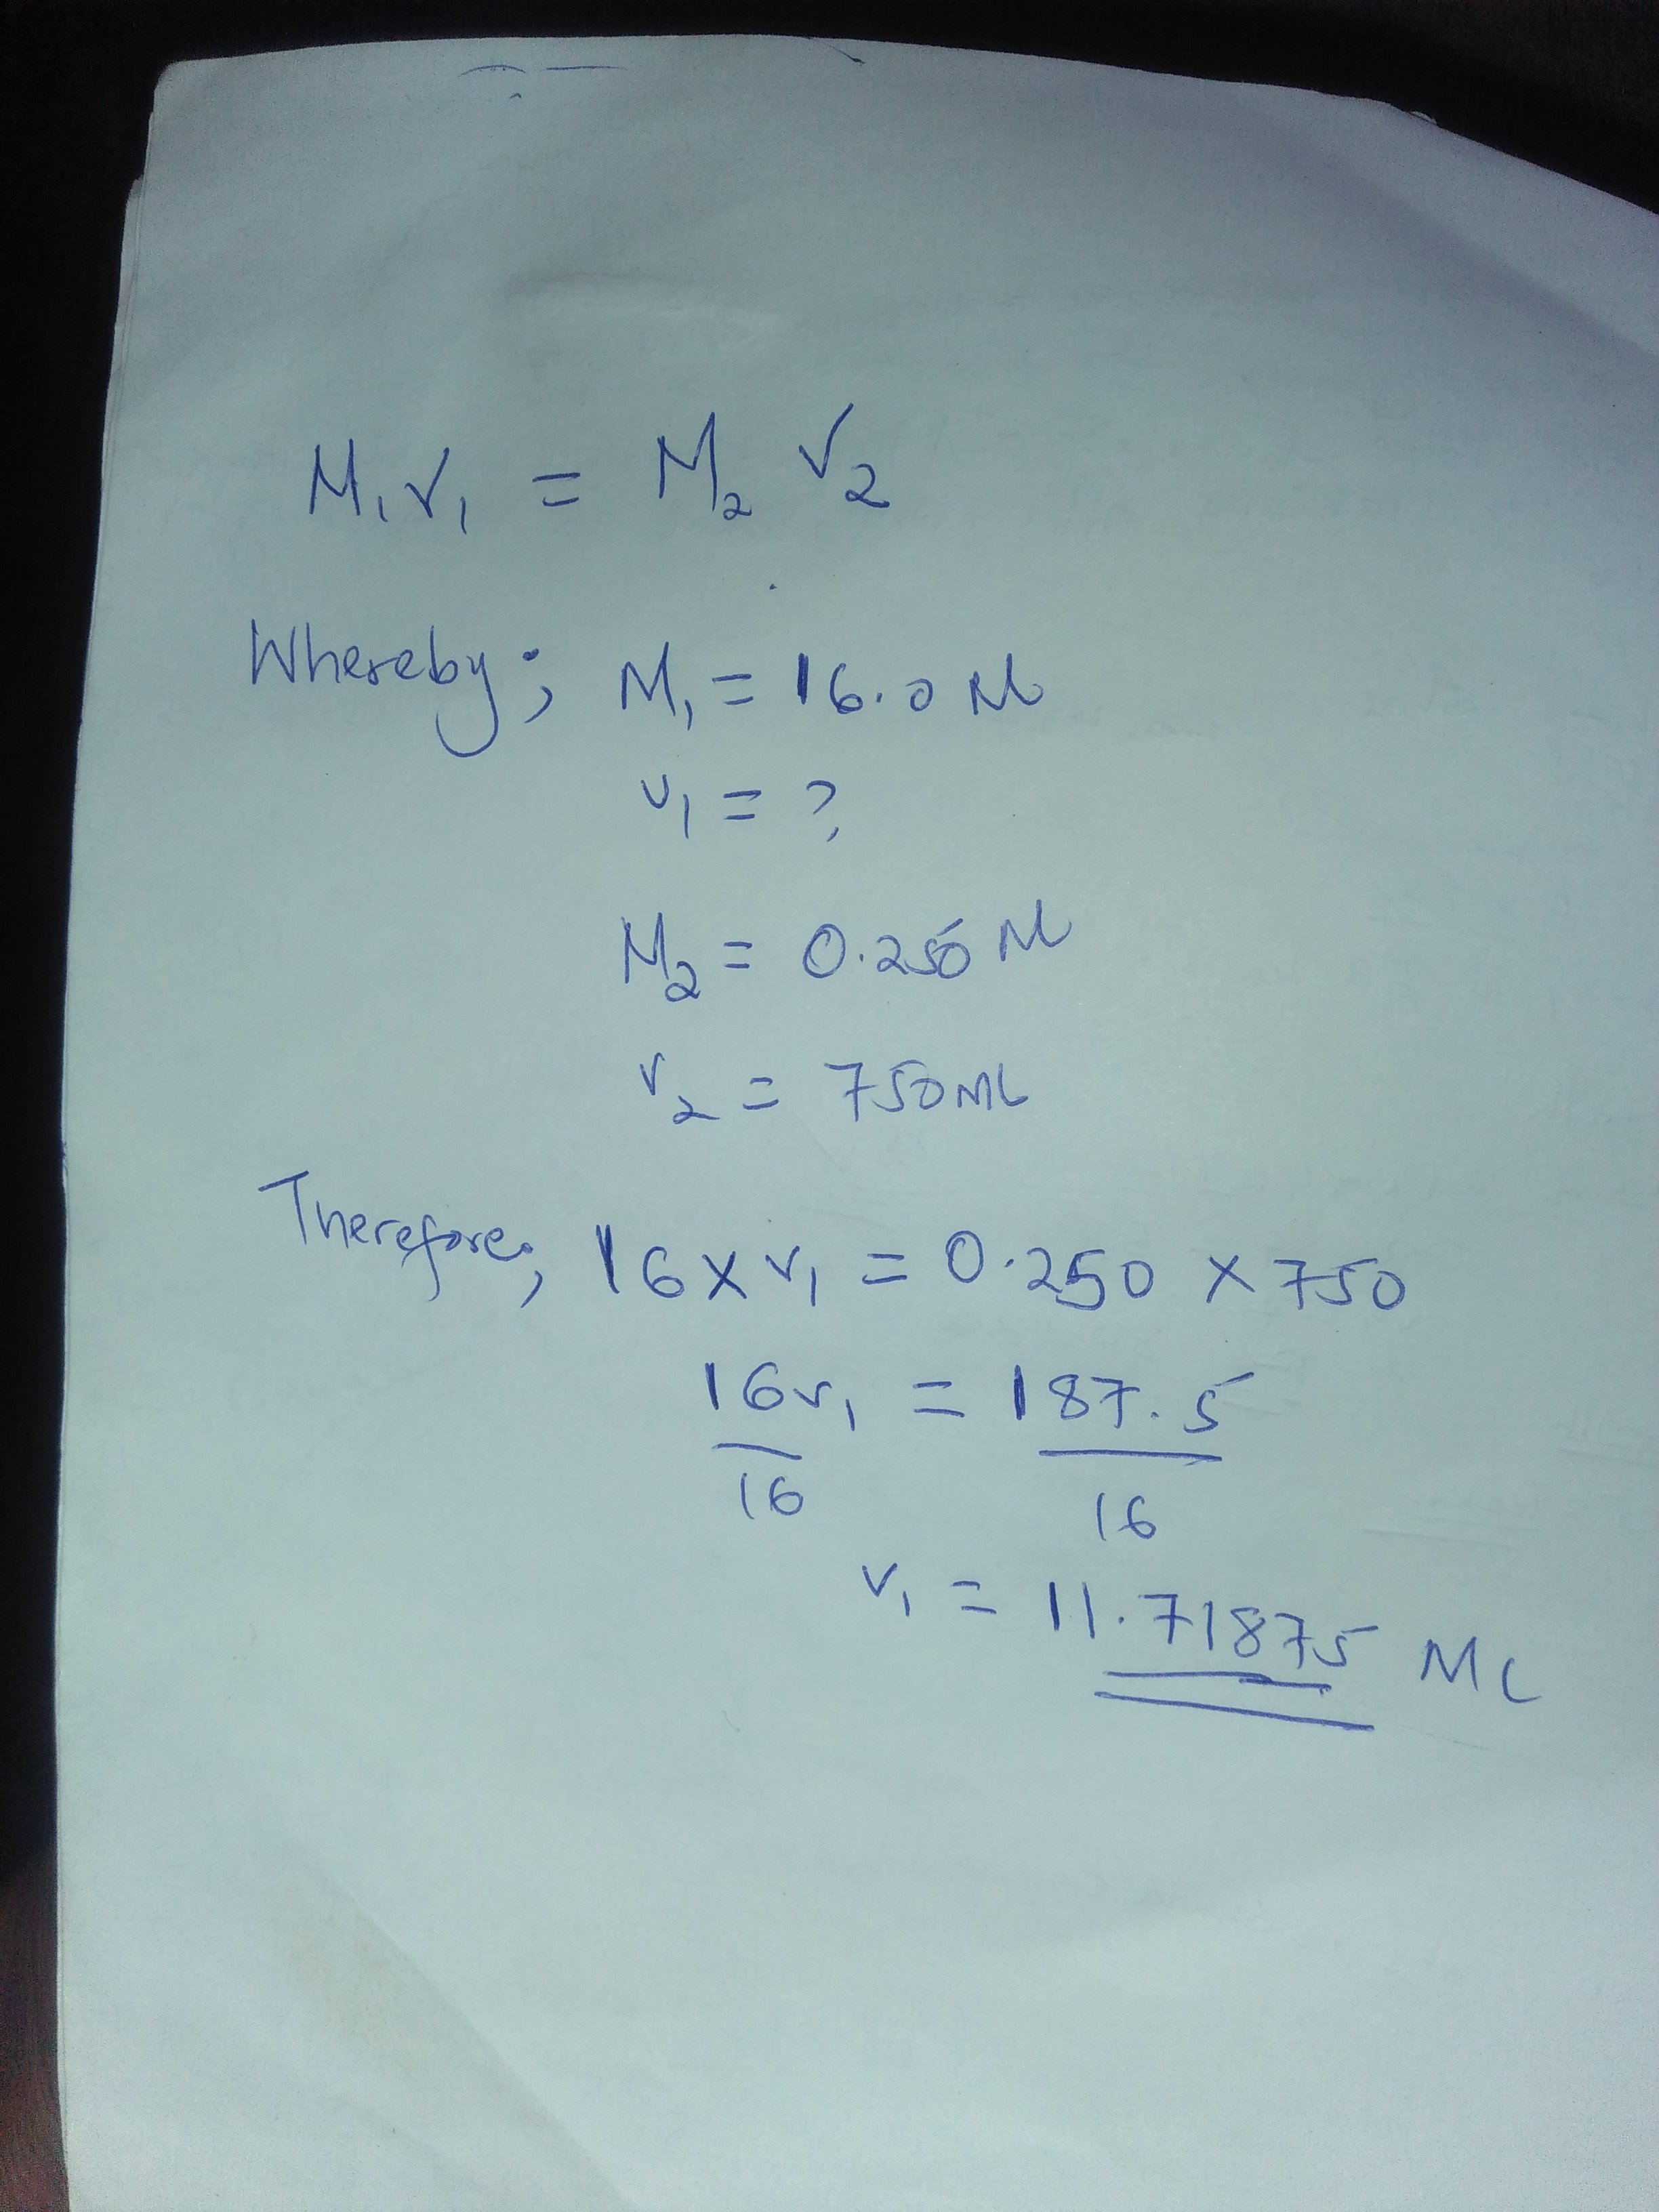 M₁V₁ = M₂ V₂
Whereby; M₁ = 16.0 M
V₁ = ?
M₂ = 0.250 M
V₂ = 750ML
Therefore, 16 x V₁ = 0.250 x 750
16V₁ = 187.5
16 16
V₁ = 11.71875 ML